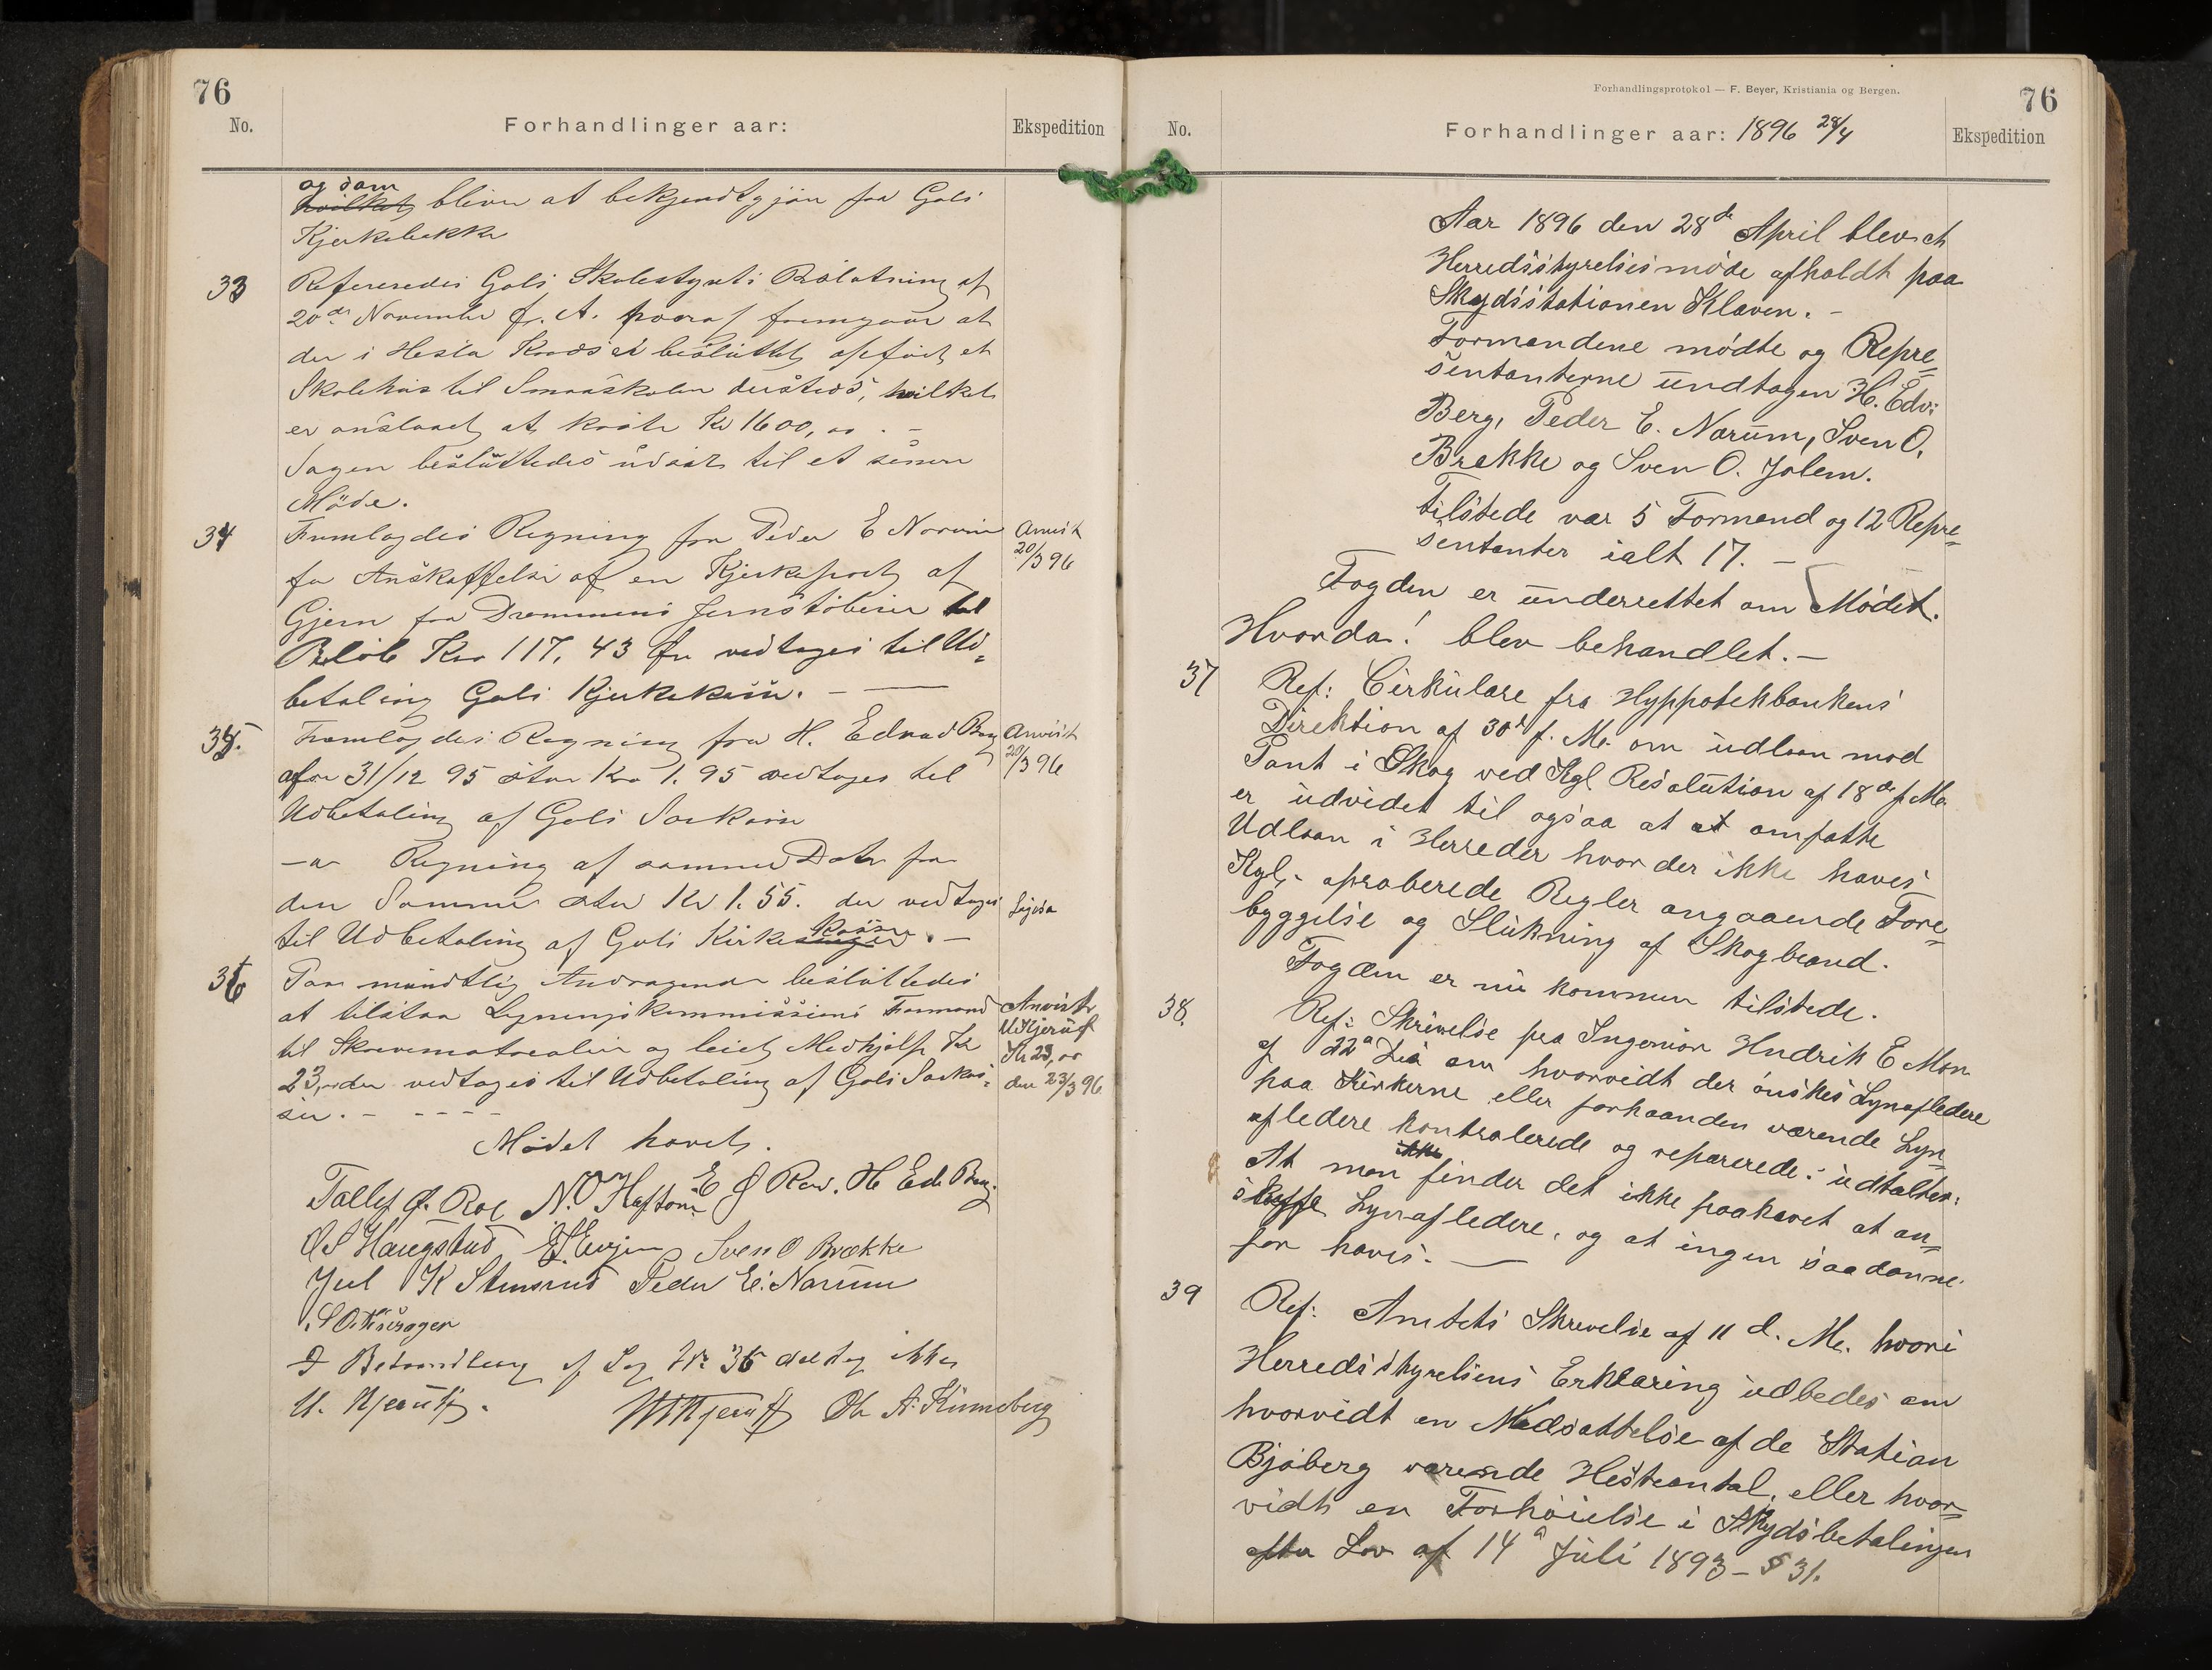 76
No.
Forhandlinger aar:
Ekspedition
og som
hvilket bliver at bekjendtgjøre fra Gols
Kjerkebakke
33
Refereredes Gols Skolestyrets Beslutning af
20de November f. A. hvoraf fremgaar at
der i Hesla Kreds er besluttet opført et
Skolehus til Smaaskolen dersteds, hvilket
er anslaaet at koste Kr 1600,00. –
Sagen besluttedes udsat til et senere
Møde.
34
Fremlagdes Regning fra Peder E Norum
Anvist
20/3 96
for Anskaffelse af en Kjerkeport af
Gjern fra Drammens Jernstøberi til
Beløb Kro 117,43 Øre vedtages til Ud=
betaling Gols Kjerkekasse. –
35.
Fremlagdes Regning fra H. Edvard Berg
Anvist
20/3 96
for 31/12 95 stor Kro 1.95 vedtages til
Udbetaling af Gols Sokasse
– Regning af samme Dato fra
den Samme stor Kr 1.55. der vedtages
til Udbetaling af Gols Kirkekasse. –
36
Paa mundtlig Andragende besluttedes
at tilstaa Ligningskommissions Formand
til Skrivematerialier og leiet Medhjælp Kr
23,00 der vedtages til Udbetaling af Gols Sokas=
se. – – – – –
Anvist
U Kjerulf
Kr 23,00
den 23/3 96
Mødet hævet.
Tollef O. Roe N. O Haftorn E J Roe. H Edv Berg.
O S Haugstad Sven O Brække
Juel K Stensrud Peder E. Narum
I Behandling af Sag Nr 36 deltog ikke
U. Kjerulf. U Kjerulf Ole A. Kinneberg
Forhandlingsprotokol — F. Beyer, Kristiania og Bergen.
76
No.
Forhandlinger aar: 1896 28/4
Ekspedition
Aar 1896 den 28de April blev et
Herredsstyrelsesmøde afholdt paa
Skydsstationen Kløven. –
Formændene mødte og Repre=
sentanterne undtagen H. Edv:
Berg, Peder E. Narum, Sven O.
Brække og Sven O. Jolem.
tilstede var 5 Formænd og 12 Repre=
sentanter ialt 17. –
Fogden er underrettet om Mødet.
Hvorda! blev behandlet. –
37
Ref: Cirkulære fra Hyppothekbankens
Direktion af 30d f. M. om udlaan mod
Pant i Skog ved Kgl Resolution af 18de f. M.
er udvidet til ogsaa at at omfatte
Udlaan i Herreder hvor der ikke haves
Kgl. aproberede Regler angaaende Fore=
byggelse og Slukning af Skogbrand.
Fogden er nu kommen tilstede.
38.
Ref: Skrivelse fra Ingeniør Hendrik E Mon
af 22d Ds om hvorvidt der ønskes Lynafledere
paa Kirkerne eller forhaanden værende Lyn=
afledere kontrolerede og reparerede: udtaltes:
At man ikke finder det ikke paakrævet at an=
skaffe Lynafledere, og at ingen saadanne
før haves. –
39
Ref: Amtets Skrivelse af 11 d. M. hvori
Herredsstyrelsens Erklæring udbedes om
hvorvidt en Nedsættelse af de Station
Bjøberg værende Hesteantal, eller hvor=
vidt en Forhøielse i Skydsbetalingen
efter Lov af 14d Juli 1893 – § 31.